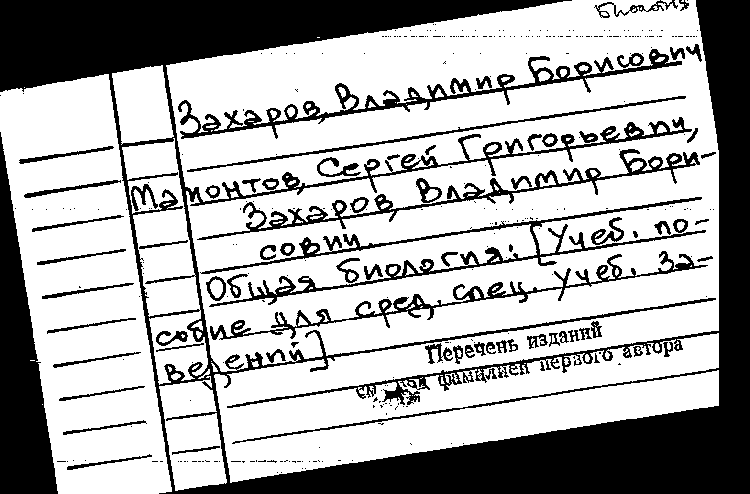 Биология
Захаров, Владимир Борисович
Мамонтов, Сергей Григорьевич,
Захаров, Владимир Бори-
сович.
Общая биология: [Учеб. по-
собие для сред. спец. учеб. за-
ведений].
Перечень изданий
см. под фамилией первого автора